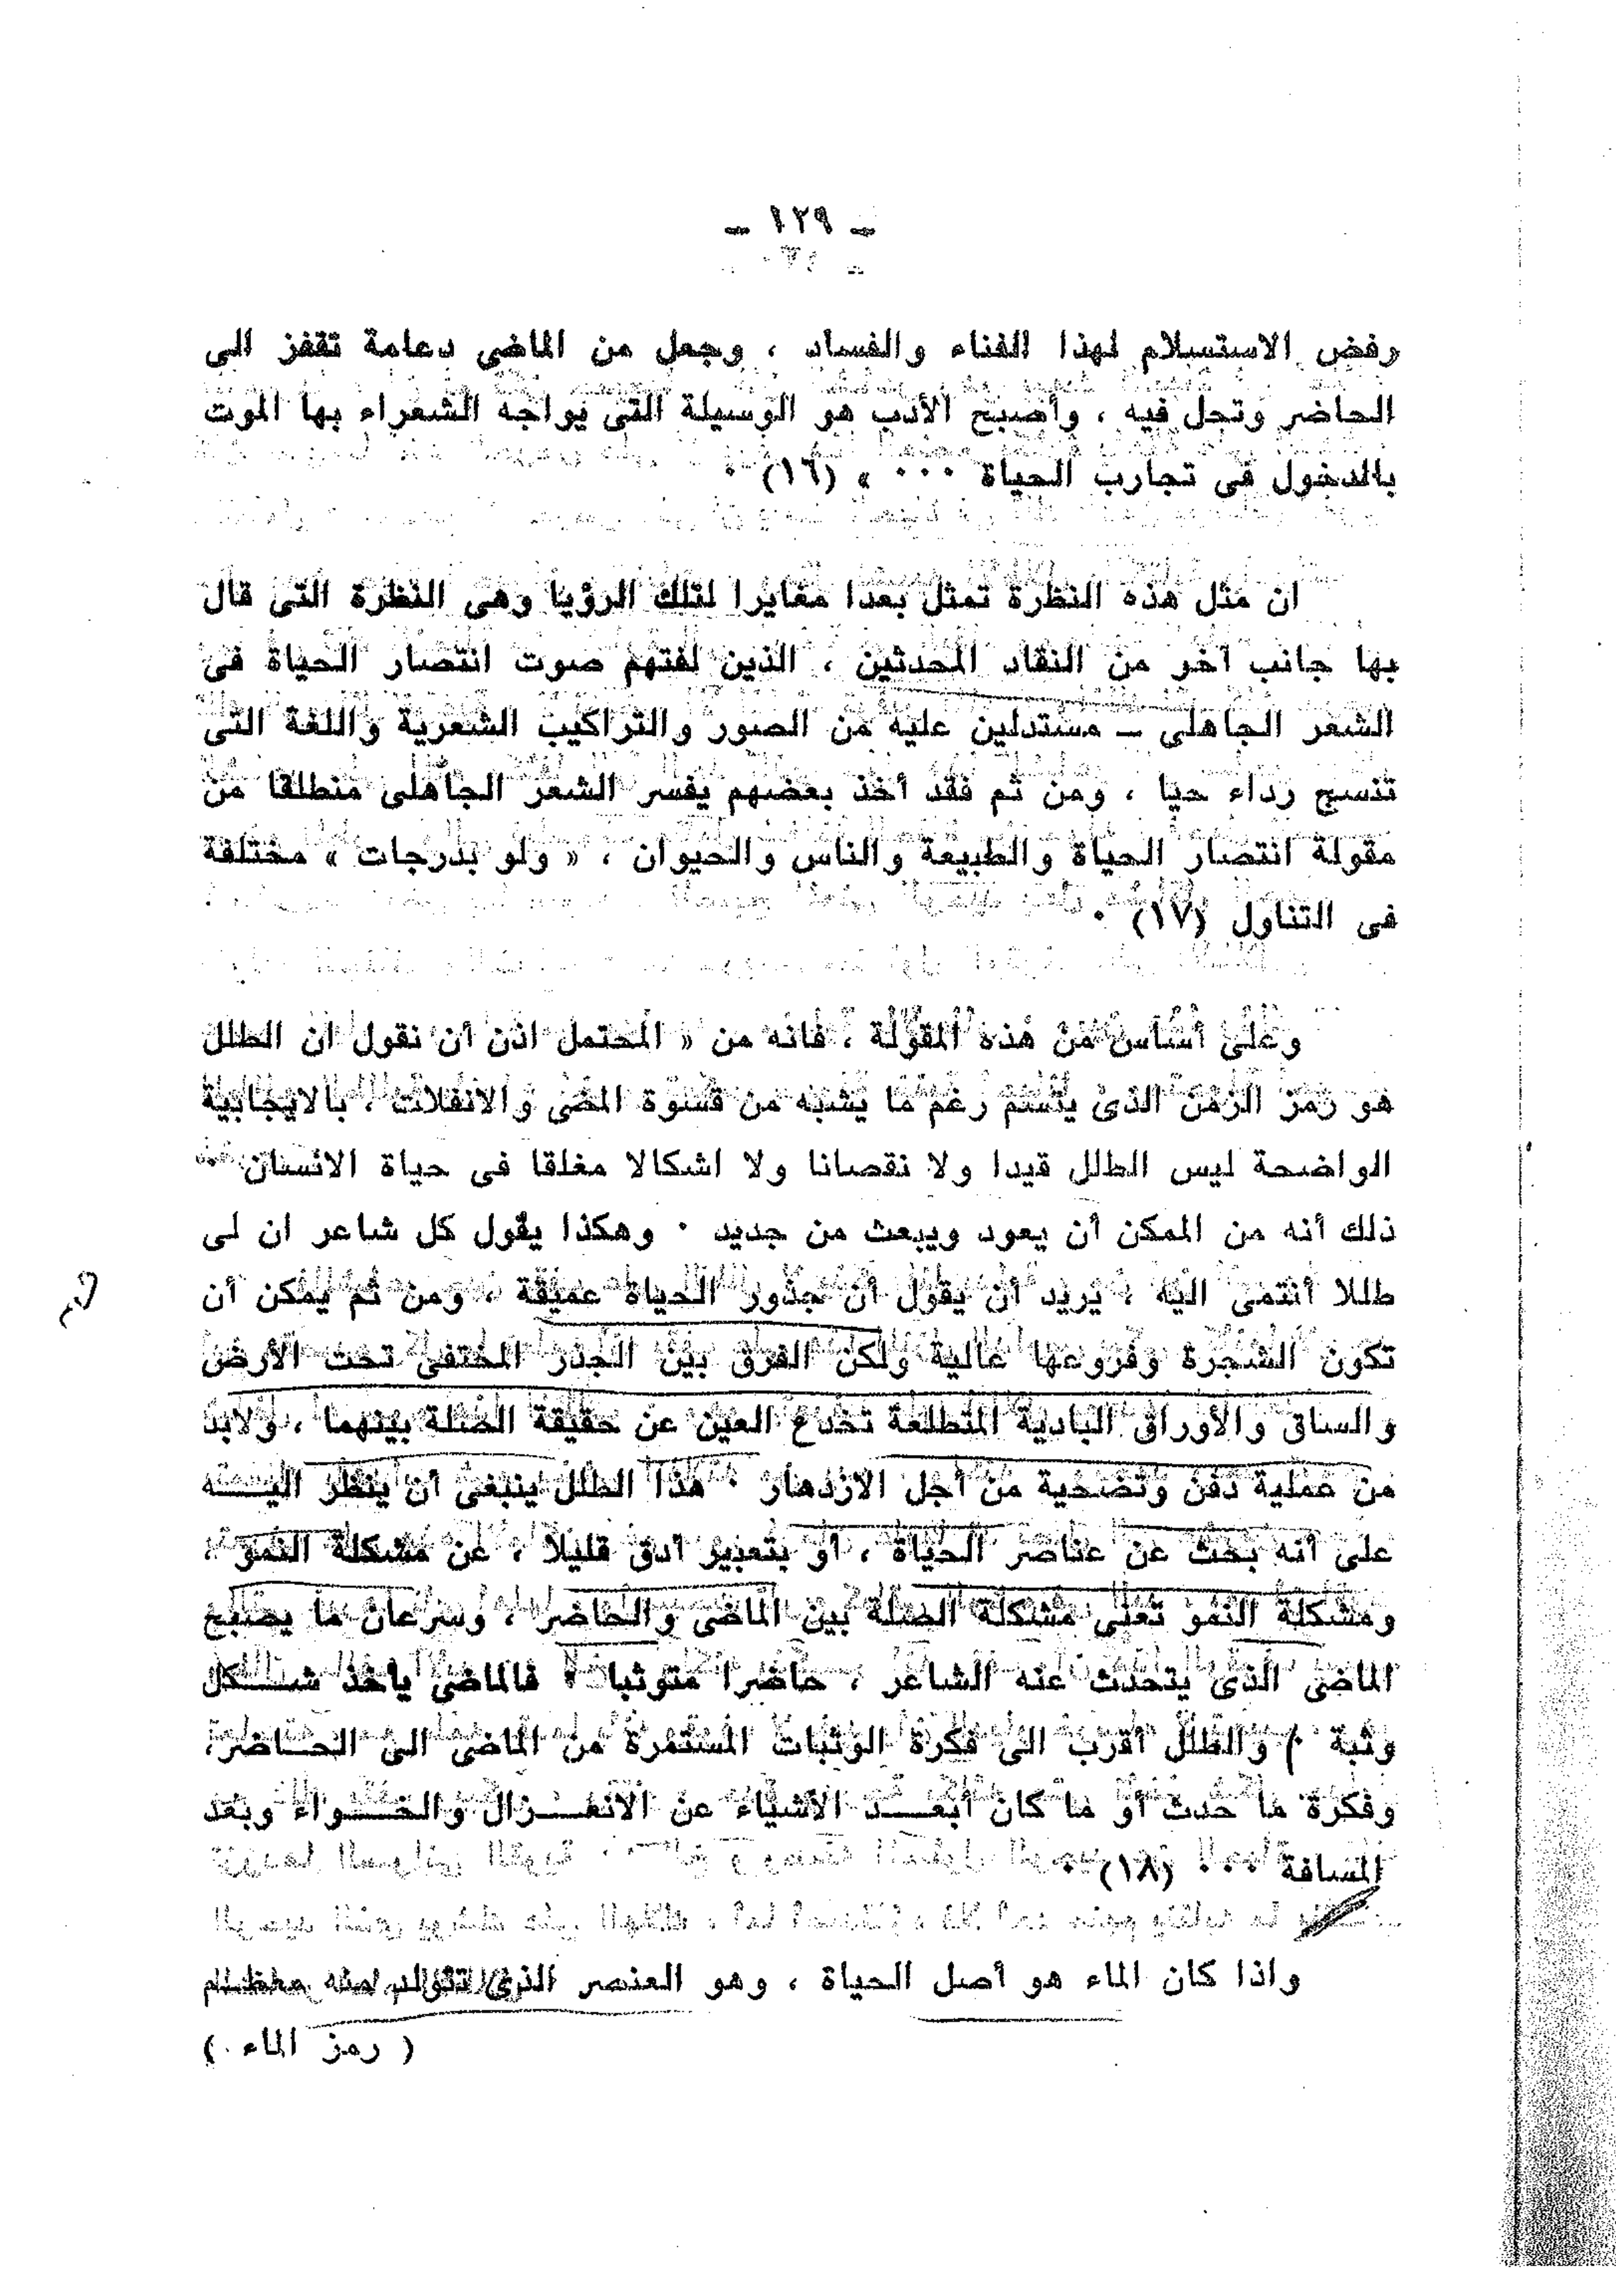 ـ ١٢٩ ـ
رفض الاستسلام لهذا الفناء والفساد ، وجعل من الماضى دعامة تقفز الى
الحاضر وتحل فيه ، وأصبح الأدب هو الوسيلة التى يواجه الشعراء بها الموت
بالدخول فى تجارب الحياة ٠٠٠ » (١٦) ٠
ان مثل هذه النظرة تمثل بعدا مغايرا لتلك الرؤيا وهى النظرة التى قال
بها جانب آخر من النقاد المحدثين ، الذين لفتهم صوت انتصار الحياة فى
الشعر الجاهلى ـ مستدلين عليه من الصور والتراكيب الشعرية واللغة التى
تنسج رداء حيا ، ومن ثم فقد أخذ بعضهم يفسر الشعر الجاهلى منطلقا من
مقولة انتصار الحياة والطبيعة والناس والحيوان ، « ولو بدرجات » مختلفة
فى التناول (١٧) ٠
وعلى أساس من هذه المقولة ، فانه من « المحتمل اذن أن نقول ان الطلل
هو رمز الزمن الذى يتسم رغم ما يشبه من قسوة المضى والانفلات ، بالايجابية
الواضحة ليس الطلل قيدا ولا نقصانا ولا اشكالا مغلقا فى حياة الانسان ٠
ذلك أنه من الممكن أن يعود ويبعث من جديد ٠ وهكذا يقول كل شاعر ان لى
طللا أنتمى اليه ، يريد أن يقول أن جذور الحياة عميقة ، ومن ثم يمكن أن
تكون الشجرة وفروعها عالية ولكن الفرق بين الجذر المختفى تحت الأرض
والساق والأوراق البادية المتطلعة تخدع العين عن حقيقة الصلة بينهما ، ولابد
من عملية دفن وتضحية من أجل الازدهار ٠ هذا الطلل ينبغى أن ينظر اليـــه
على أنه بحث عن عناصر الحياة ، أو بتعبير أدق قليلا ، عن مشكلة النمو ،
ومشكلة النمو تعنى مشكلة الصلة بين الماضى والحاضر ، وسرعان ما يصبح
الماضى الذى يتحدث عنه الشاعر ، حاضرا متوثبا ٠ فالماضى يأخذ شـــكل
وثبة ٠ والطلل أقرب الى فكرة الوثبات المستمرة من الماضى الى الحــاضر،
وفكرة ما حدث أو ما كان أبعـــد الأشياء عن الانعـــزال والخـــواء وبعد
المسافة ٠٠٠ (١٨) ٠
واذا كان الماء هو أصل الحياة ، وهو العنصر الذى تتولد منه معظــم
( رمز الماء ٠)